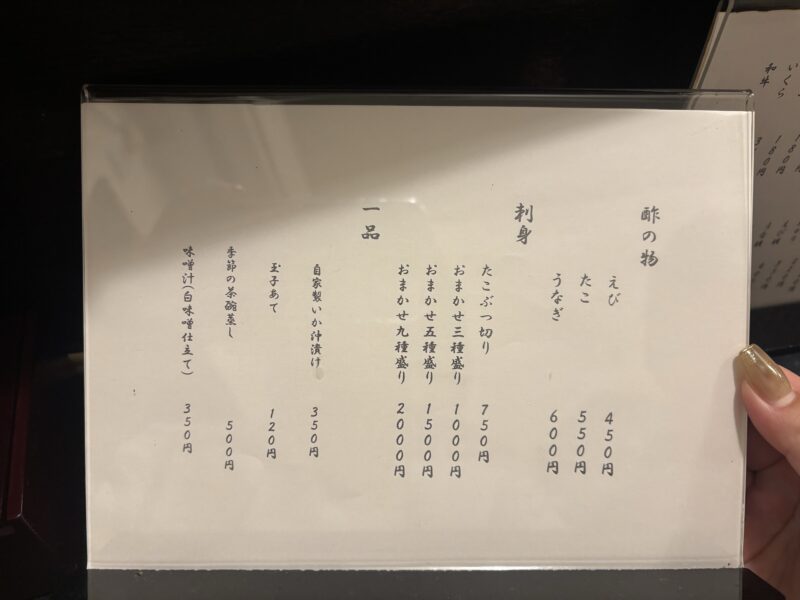 酢の物
えび 450円
たこ 550円
うなぎ 600円
刺身
たこぶつ切り 750円
おまかせ三種盛り 1000円
おまかせ五種盛り 1500円
おまかせ九種盛り 2000円
一品
自家製いか沖漬け 350円
玉子あて 120円
季節の茶碗蒸し 500円
味噌汁(白味噌仕立て) 350円
いくら
和牛
180円